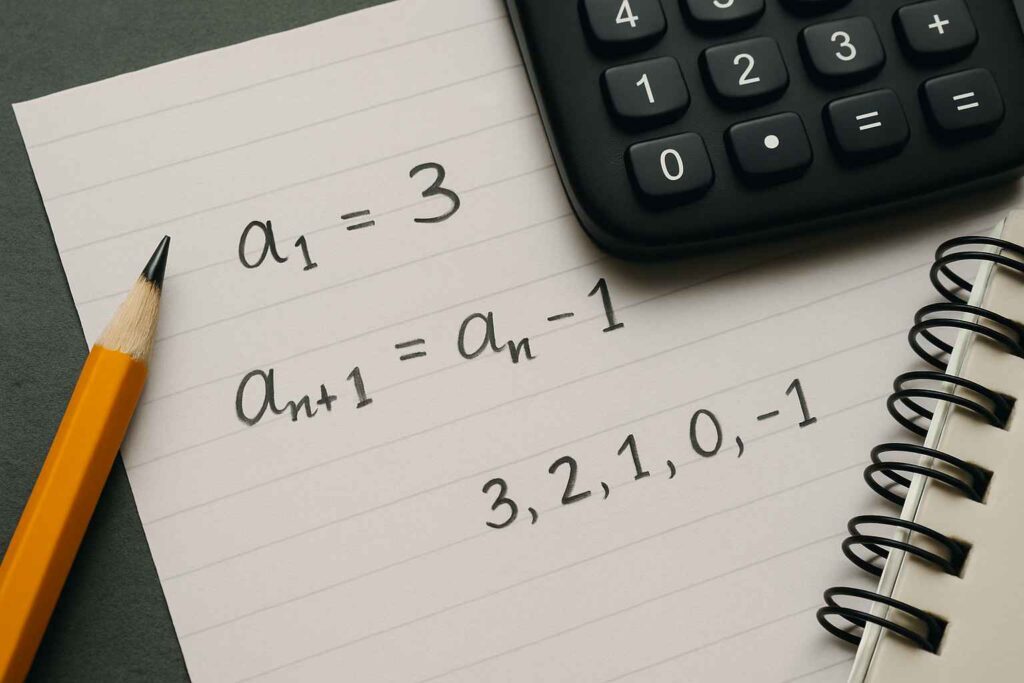 4
1 2 3 +
0 • = =
a₁ = 3
aₙ₊₁ = aₙ - 1
3, 2, 1, 0, -1